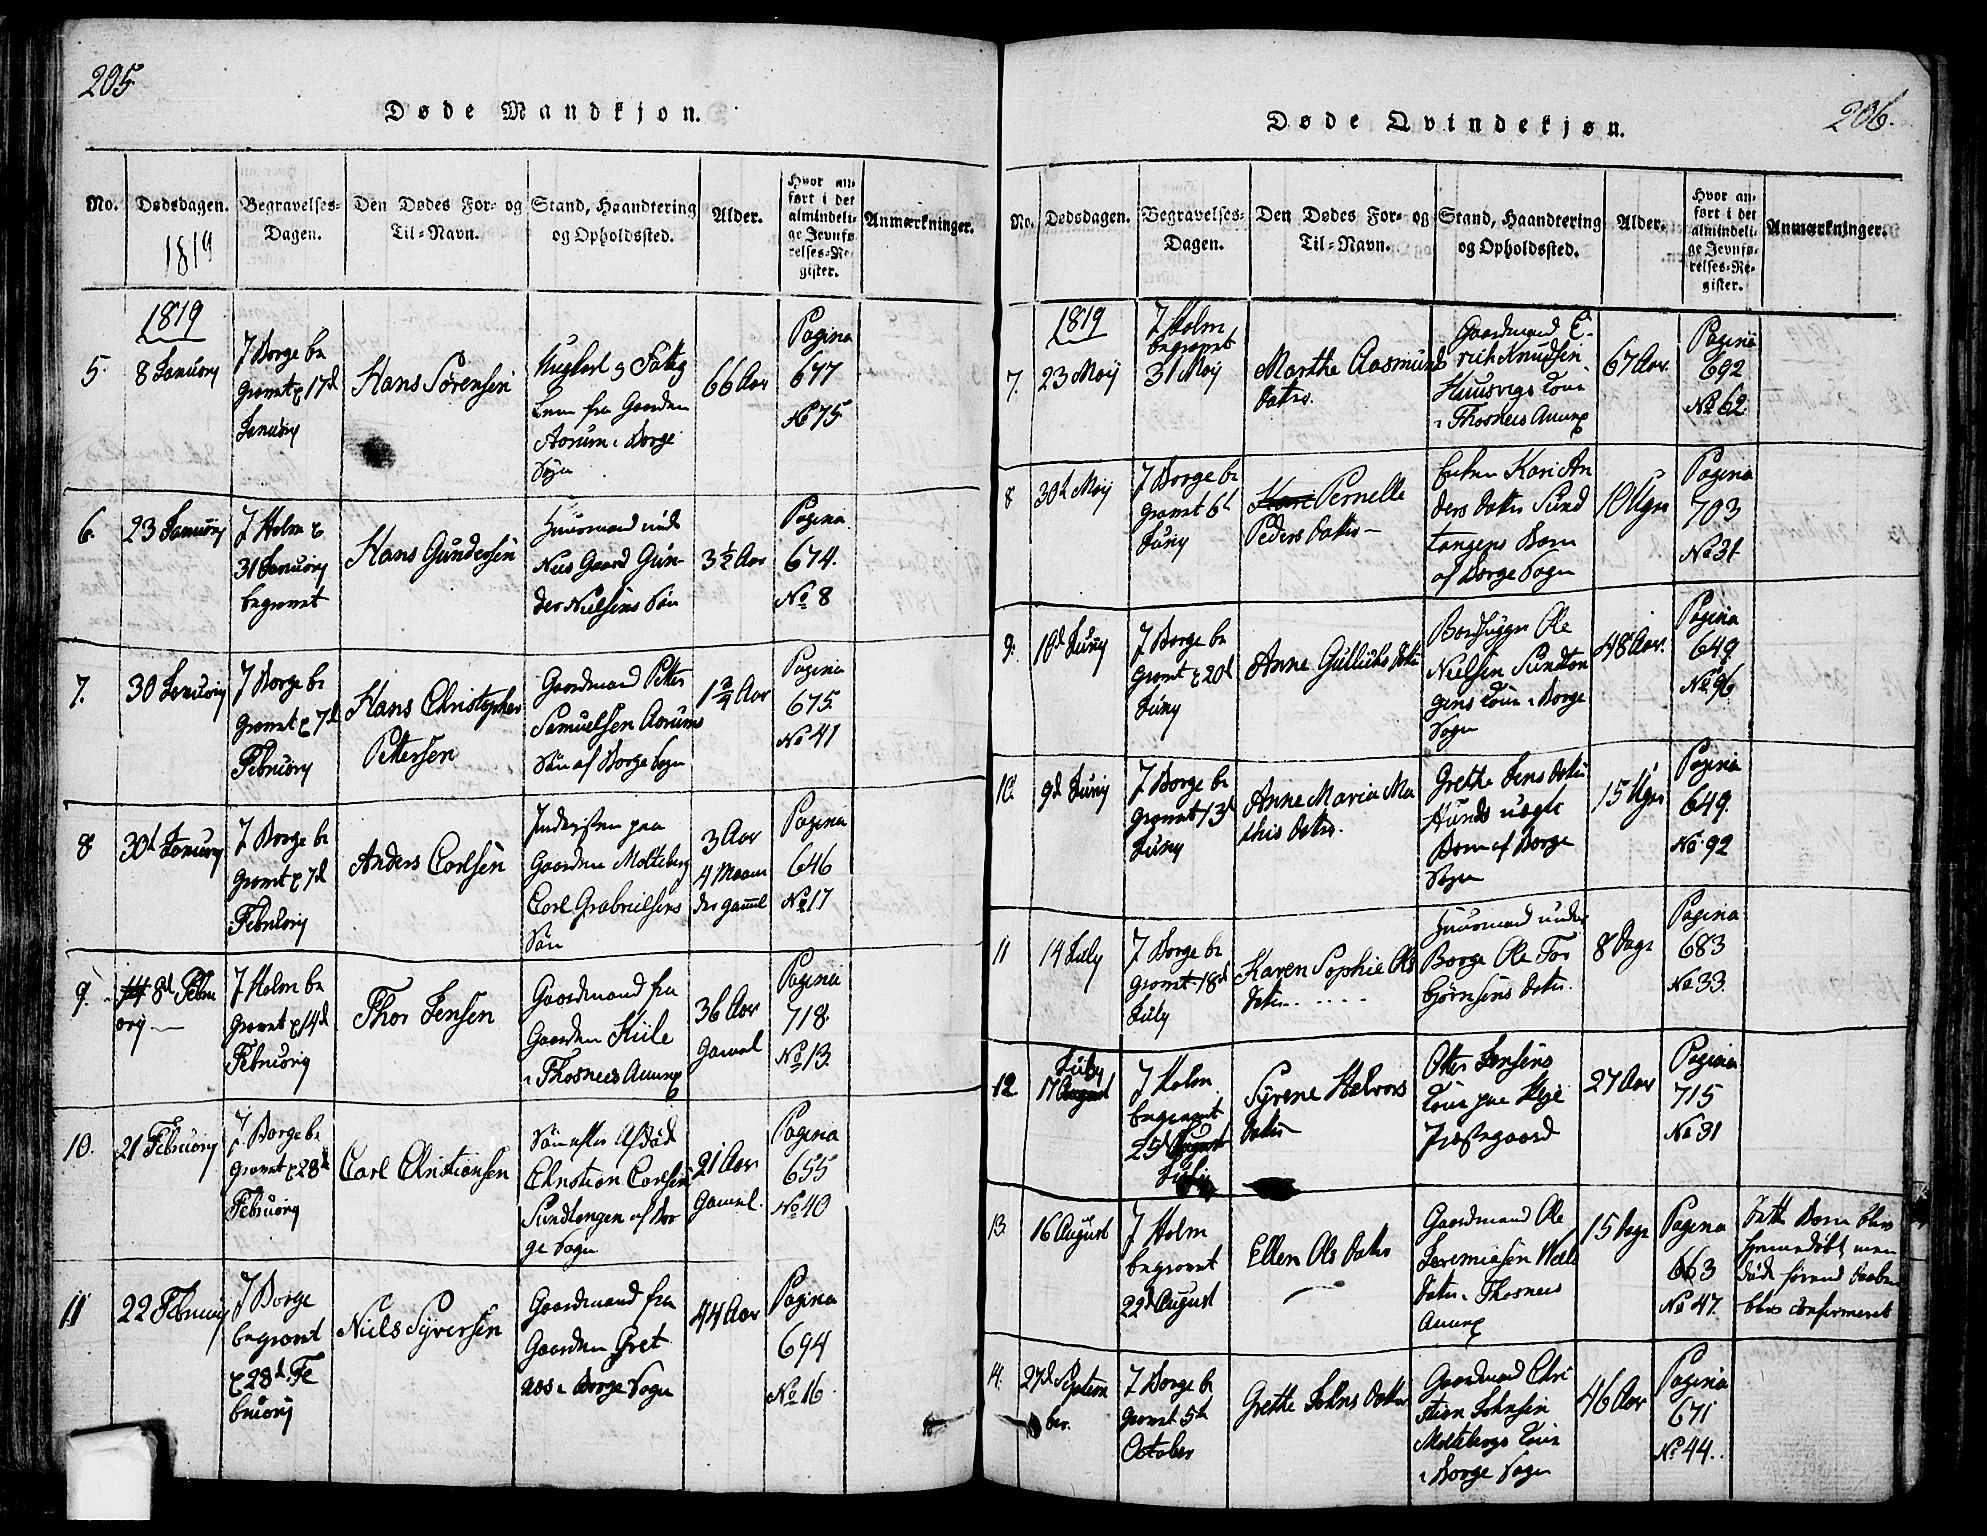 205.
Døde Mandkjøn.
No.
Dødsdagen.
1819
Begravelses-
Dagen.
Den Dødes For- og
Til-Navn.
Stand, Haandtering
og Opholdssted.
Alder.
Hvor an-
ført i det
almindeli-
ge Jevnfø-
relses-Re-
gister.
Anmærkninger.
1819
5.
8 Januarij
I Borge be
gravet d 17d
Januarij
Hans Sörensen
fra Gaarden
Aarum i Borge
Sogn
66 Aar
Pagina
677
No 75
6.
23 Januarij
I Holm d
31 Januarij
begravet
Hans Gundersen
Huusmand unde
Nees Gaard Gun-
der Nielsens Sön
3½ Aar
Pagina
674.
No 8
7.
30 Januarij
I Borge be
gravet d 7d
Februarij
Hans Christopher
Pettersen
Gaardmand Petter
Samuelsen Aarums
Sön af Borge Sogn
1¾ Aar
Pagina
675
No 41
8
30t Januarij
I Borge be
gravet d 7d
Februarij
Anders Carlsen
Inderste paa
Gaarden Molteberg
Carl Grabrielsens
Sön
3 Aar
4 Maane
der gaml
Pagina
646
No 17
9.
8d Febru
arij
I Holm be
gravet d 14d
Februarij
Thor Jensen
Gaardmand fra
Gaarden Kiile
i Thosnees Annex
36 Aar
Gammel
Pagina
718
No 13.
10.
21 Februarij
I Borge be
gravet d 28d
Februarij
Carl Christiansen
Sön efter Afdöd
Christian Carlsen
Sundlöngen af Bor
ge Sogn
21 Aar
Gammel.
Pagina
655
No 40
11
22 Februarij
I Borge
begravet
d 28d Fe
bruarij
Niels Syversen
Gaardmand fra
Gaarden Gret
aas i Borge Sogn
44 Aar
Pagina
694
No 16.
206.
Døde Qvindekjøn.
No.
Dødsdagen.
Begravelses-
Dagen.
Den Dødes For- og
Til-Navn.
Stand, Haandtering
og Opholdssted.
Alder.
Hvor an-
ført i det
almindeli-
ge Jevnfø-
relses-Re-
gister.
Anmærkninger.
1819
7.
23 Maij
I Holm
begravet
31 Maij
Marthe Aasmunds
Datter.
Gaardmand E-
rich Knudsen
Huusvigs Kone
i Thosnees Annex
67 Aar.
Pagina
692
No 62
8
30t Maij
I Borge be
gravet 6t
Juny
Kari Pernelle
Peders Datter
Enken Kari An
ders Datter Sund
tangens Barn
af Borge Sogn
10 Uger
Pagina
703
No 31
9.
10d Juny
I Borge be
gravet d 20d
Juny
Anne Gulluchs Dater
Ole
Nielsen Sundtan
gens Kone i Borge
Sogn
48 Aar.
Pagina
649
No 96
10.
9d Juny
I Borge be
gravet 13d
Juny
Anne Maria Ma
this Datter.
Grethe Jens Dater
Hunds uægte
Barn af Borge
Sogn
15 Uger
Pagina
649.
No 92
11
14 July
I Borge be
gravet 18d
July
Karen Sophie Ols
Dater.
Huusmand under
Borge Ole Tor
björnsens Dater.
8 Dage
Pagina
683
No 33.
12
July
17 August
I Holm
begravet
25d August
July
Syrene Halvors
Datter
Otter Jensens
Kone paa
Præstegaard
27 Aar
Pagina
715
No 31
13.
16 August
I Holm
begravet
22d August
Ellen Ols Dater
Gaardmand Ole
Jeremiasen
Dater i Thosnees
Annex
15 Dage
Pagina
663
No 47.
Dette Barn blev
hjemmedöbt men
döde förend Daaben
blev confirmeret
14.
27d Septem
ber.
I Borge be
gravet 5t
October
Grethe Johns Datter
Gaardmand Chri
stian Johnsen
Moltebergs Kone
i Borge Sogn
46 Aar
Pagina
671
No 44.